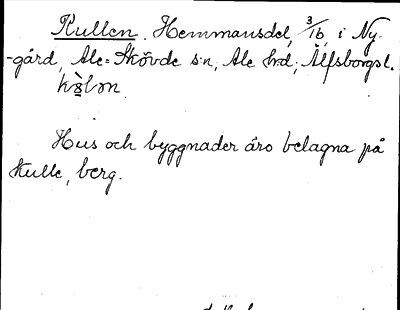 Kullen. Hemmansdel, 3/16, i Ny-
-gård, Ale=Skövde s:n, Ale hrd, Älfsborgsl.
Hus och byggnader äro belagna på
kulle, berg.